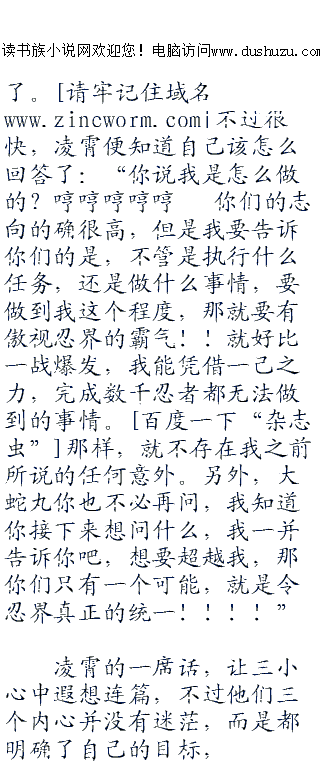 读书族小说网欢迎您！电脑访问www.dushuzu.com
了。[请牢记住域名
www.zincworm.com|不过很
快，凌霄便知道自己该怎么
回答了：“你说我是怎么做
的？哼哼哼哼哼  你们的志
向的确很高，但是我要告诉
你们的是，不管是执行什么
任务，还是做什么事情，要
做到我这个程度，那就要有
傲视忍界的霸气！！就好比
一战爆发，我能凭借一己之
力，完成数千忍者都无法做
到的事情。[百度一下“杂志
虫”]那样，就不存在我之前
所说的任何意外。另外，大
蛇丸你也不必再问，我知道
你接下来想问什么，我一并
告诉你吧，想要超越我，那
你们只有一个可能，就是令
忍界真正的统一！！！！”
凌霄的一席话，让三小
心中遐想连篇，不过他们三
个内心并没有迷茫，而是都
明确了自己的目标，